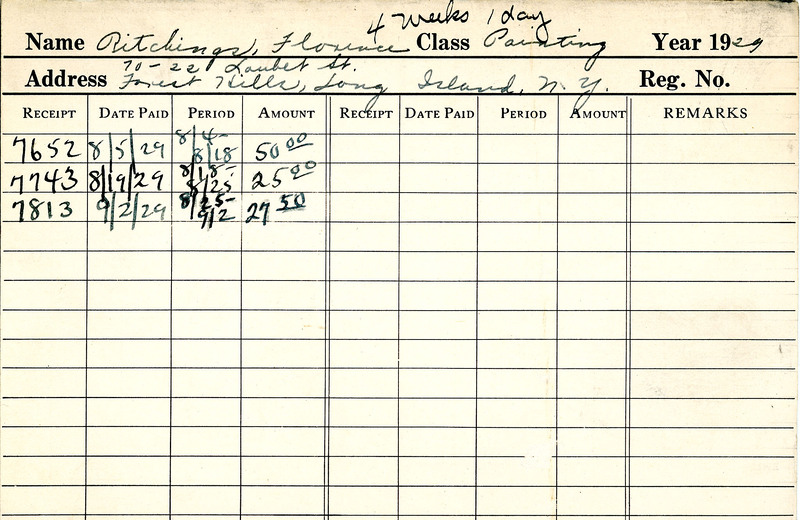 4 Weeks 1 day
Name Ritchings, Florence Class Painting Year 1929
70-22 Loubet St.
Address Forest Hills, Long Island, N.Y. Reg. No.
RECEIPT DATE PAID PERIOD AMOUNT RECEIPT DATE PAID PERIOD AMOUNT REMARKS
7652 8/5/29 8/4- 8/18 50 00
7743 8/19/29 8/18- 8/25 25 00
7813 9/2/29 8/25- 9/2 27 50